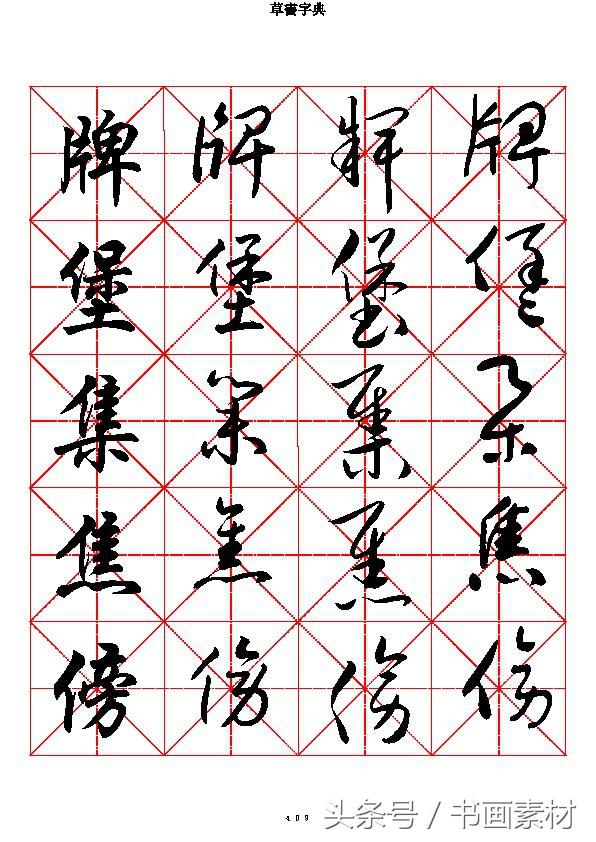 草書字典
牌 牌 牌 牌
堡 堡 堡 堡
集 集 集 集
焦 焦 焦 焦
傍 傍 傍 傍
409
头条号 / 书画素材